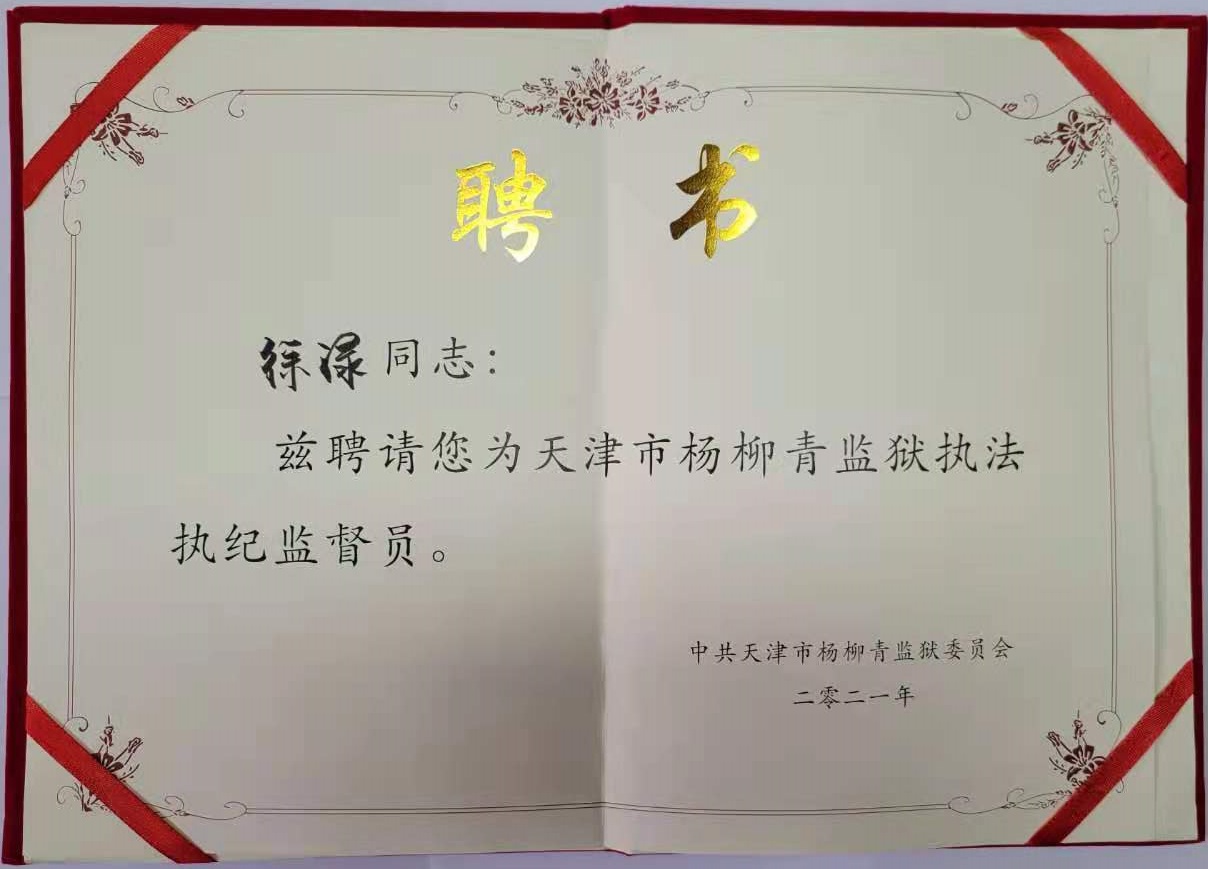 聘书
徐渌同志：
兹聘请您为天津市杨柳青监狱执法
执纪监督员。
中共天津市杨柳青监狱委员会
二零二一年